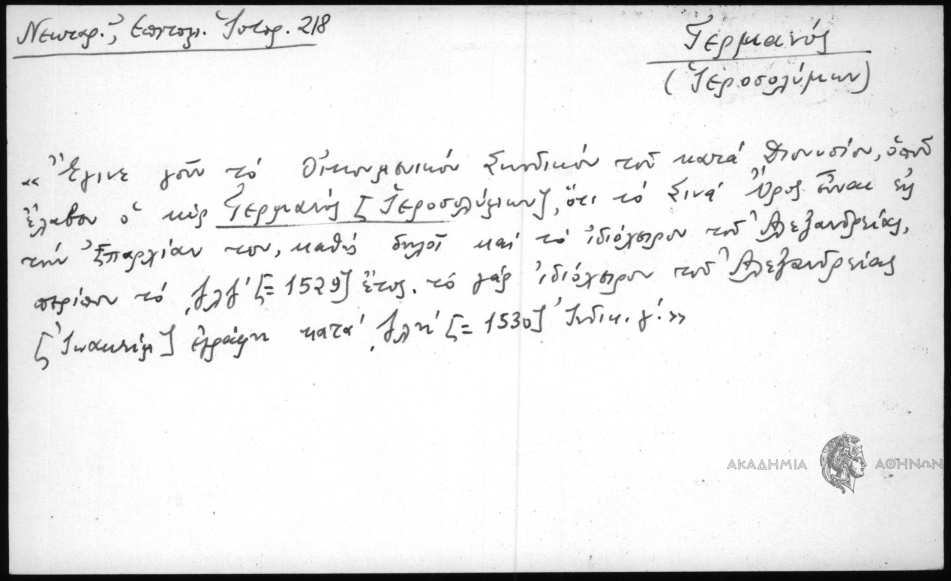 Νεκταρ., Επιτομ. Ἱστορ. 218
Γερμανός
(Ἱεροσολύμων)
«Ἔγινε γοῦν τὸ Οἰκουμενικόν Συνοδικόν τοῦ κατά Διονυσίου, ὁποῦ
ἔλαβον ὁ κὺρ Γερμανός [Ἱεροσολύμων], ὅτι τὸ Σινᾶ Ὄρος εἶναι εἰς
τὴν Ἐπαρχίαν του, καθώς δηλοῖ καὶ τὸ ἰδιόχειρον τοῦ Ἀλεξανδρείας,
περίπου τὸ ͵ζλζ' [= 1529] ἔτος. τὸ γάρ ἰδιόχειρον τοῦ Ἀλεξανδρείας
[Ἰωακείμ] ἐγράφη κατά ͵ζλη' [= 1530] Ἰνδικ. γ'.»
ΑΚΑΔΗΜΙΑ ΑΘΗΝΩΝ